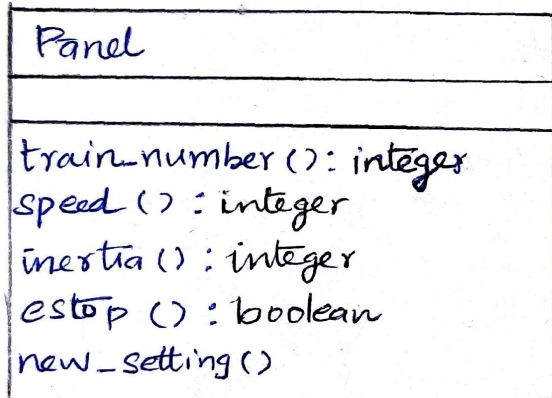 Panel
train_number (): integer
speed () : integer
inertia () : integer
estop () : boolean
new_setting ()